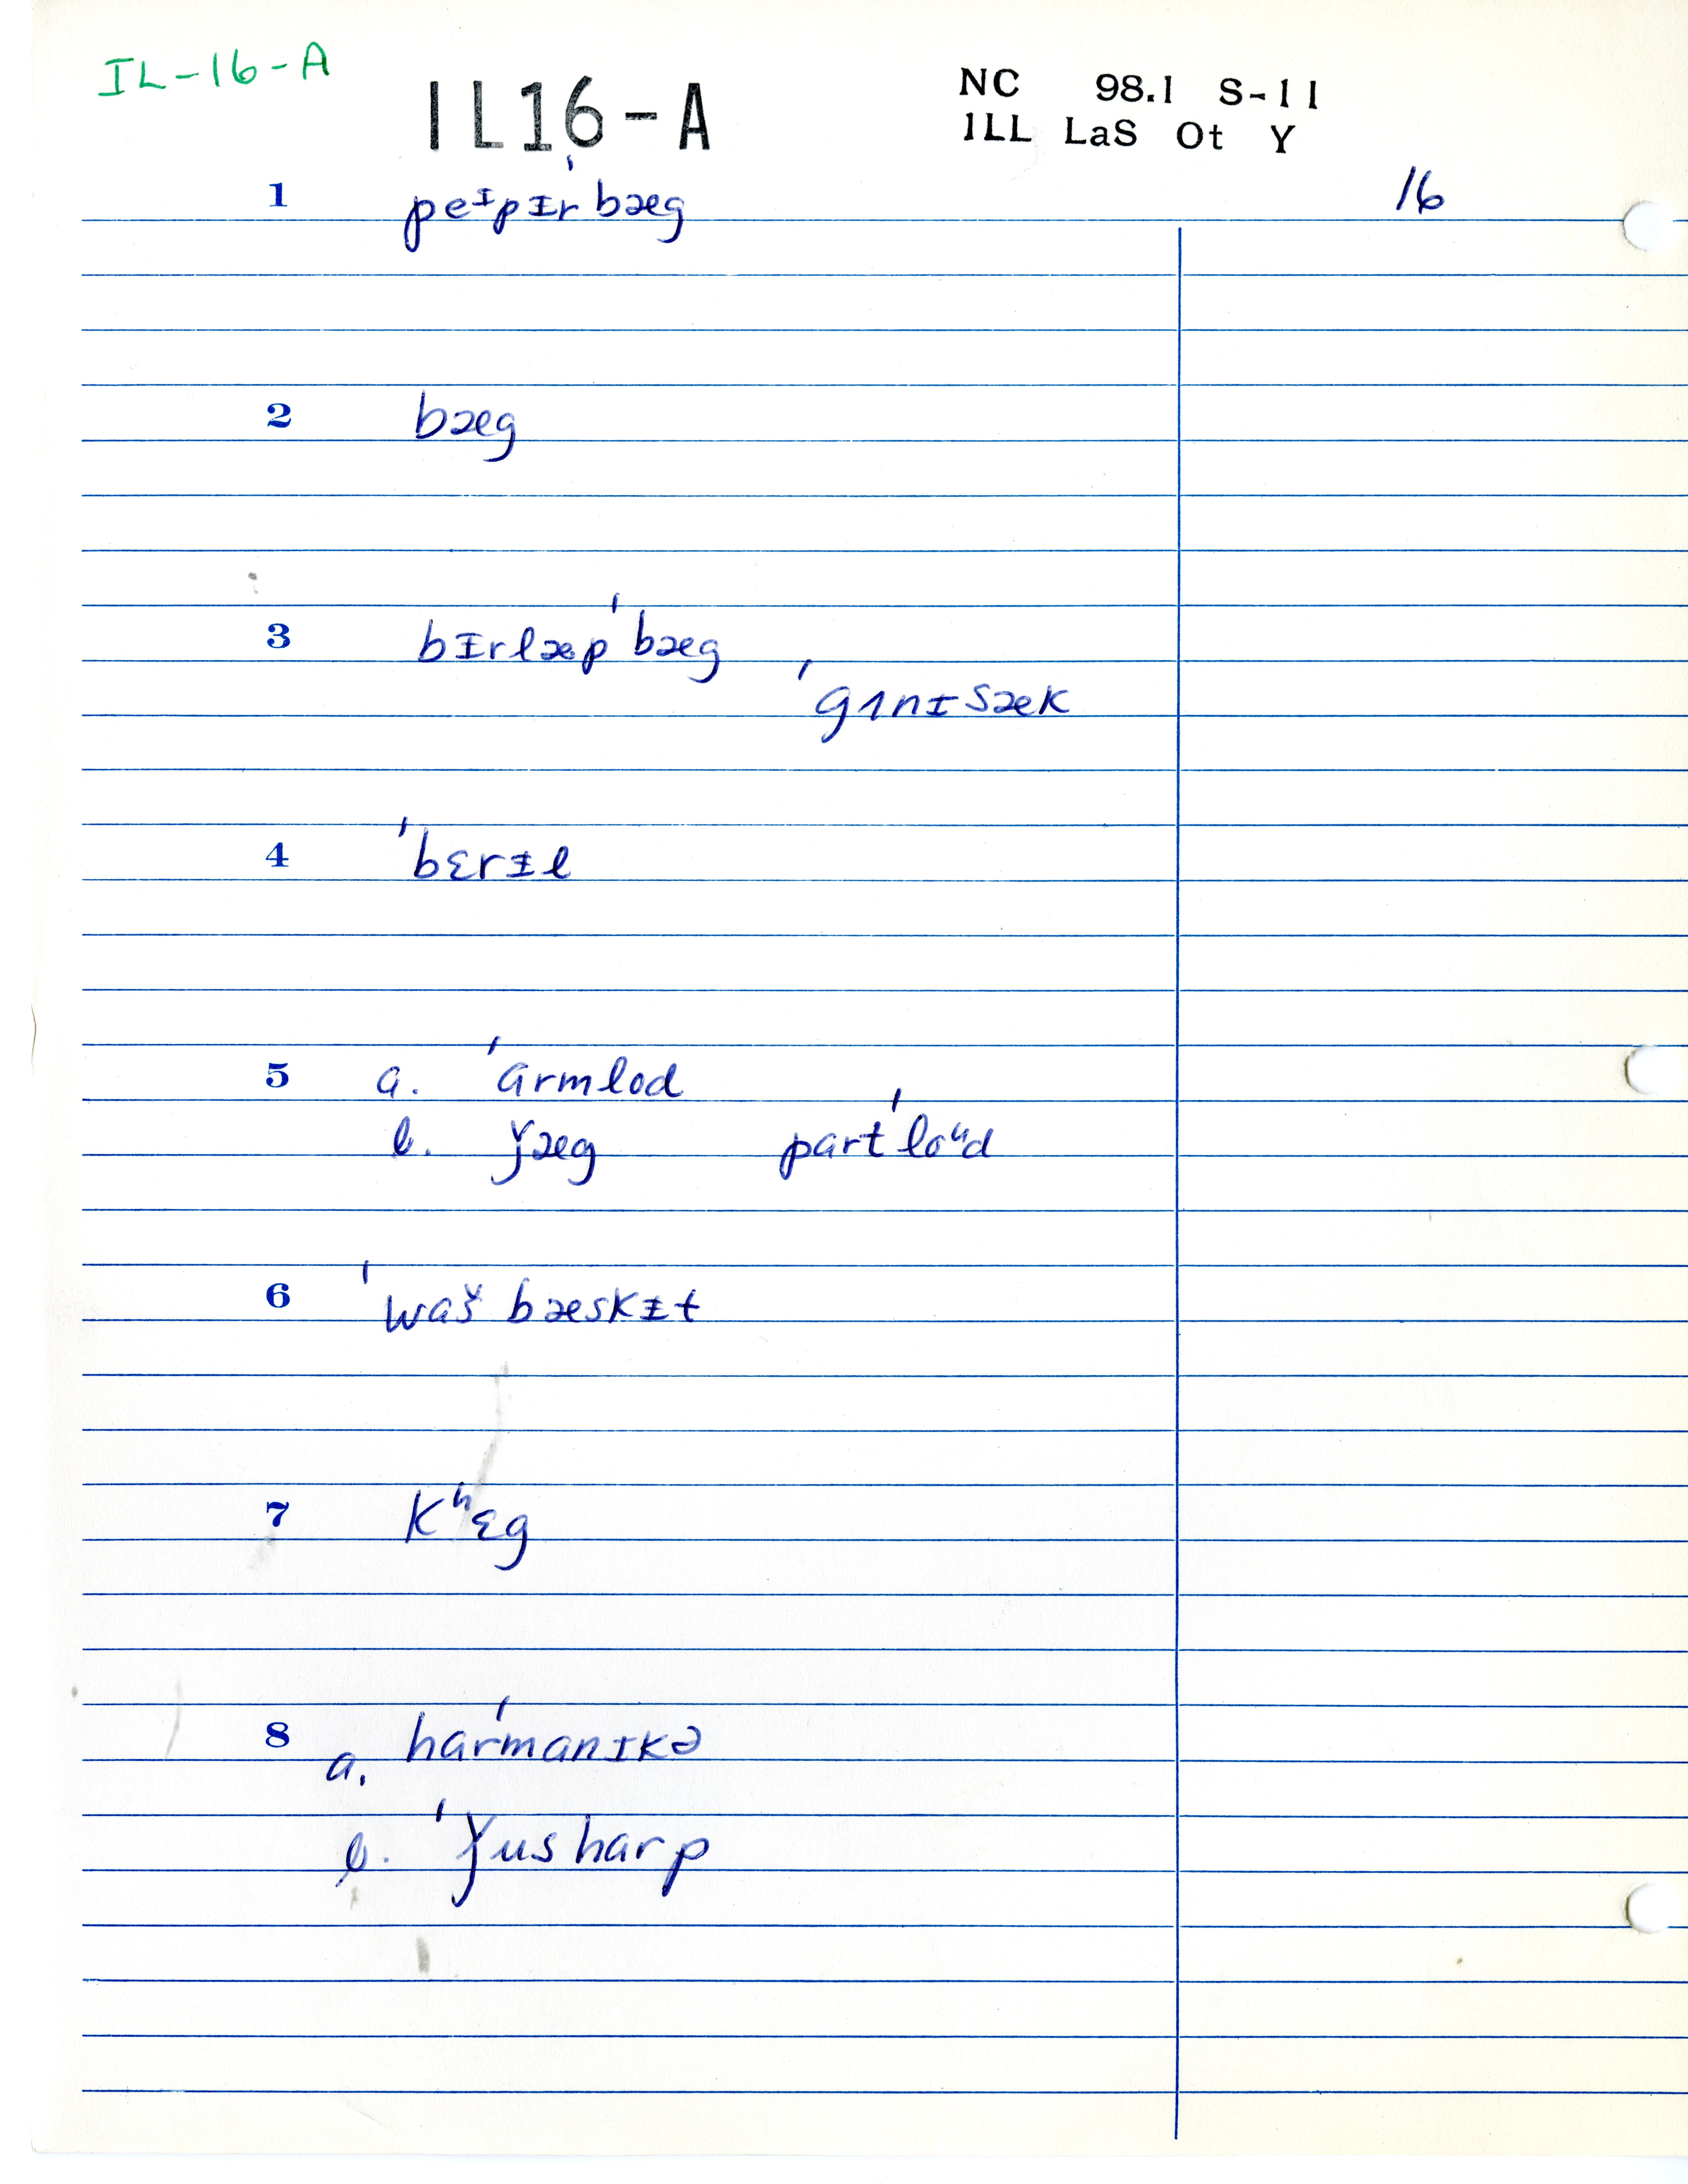 IL-16-A
IL16-A
NC 98.1 S-11
ILL LaS Ot Y
16
1 peᶦpᵻrˈbæg
2 bæg
3 bᵻrlæpˈbæg
ˈgʌnɪsæk
4 ˈbɛrᵻl
5 a. ˈarmlod
b. ǰæg partˈloᵘd
6 ˈwaš bæskᵻt
7 kʰɛg
8 a. harˈmanɪkə
b. ˈǰusharp